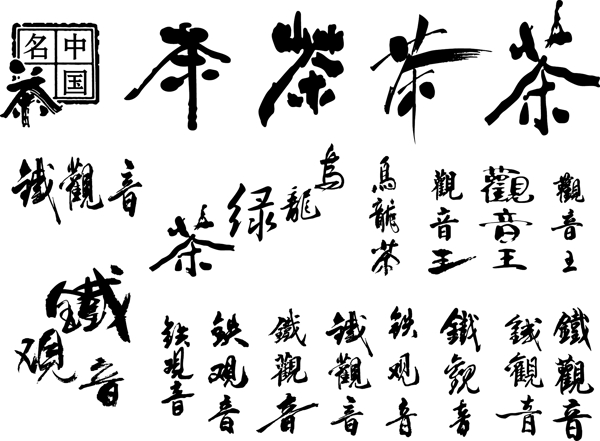 中国名茶
茶
茶
茶
茶
鐵觀音
烏龍绿茶
烏龍茶
觀音王
觀音王
觀音王
鐵观音
铁观音
铁观音
鐵觀音
鐵觀音
铁观音
鐵觀音
鐵觀音
鐵觀音